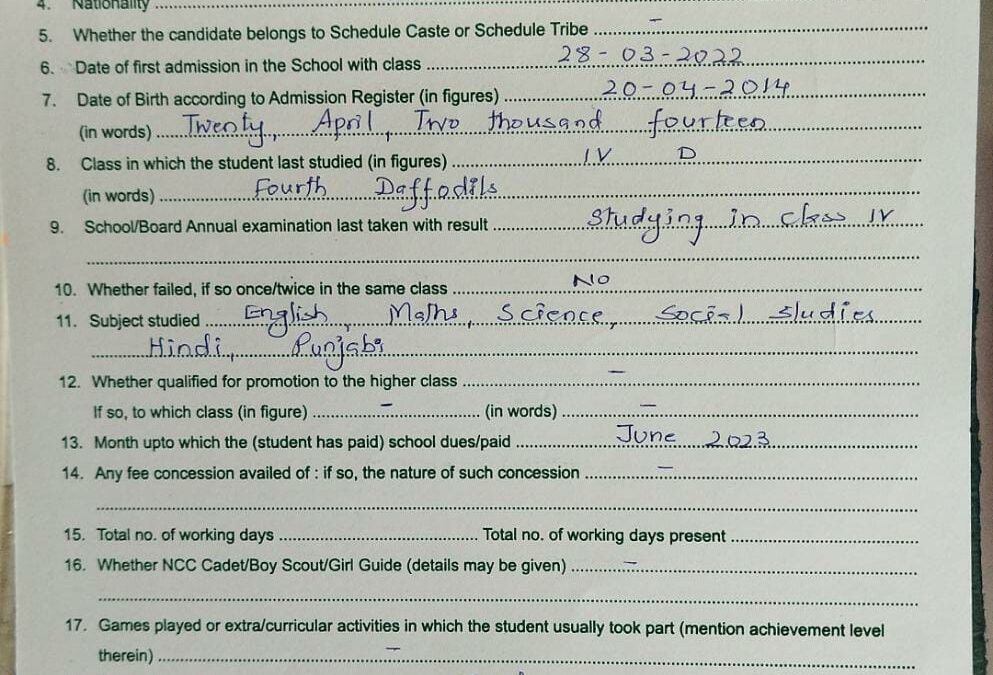 4. Nationality ........................
5. Whether the candidate belongs to Schedule Caste or Schedule Tribe ........ – ........
6. Date of first admission in the School with class ........ 28-03-2022 ........
7. Date of Birth according to Admission Register (in figures) ........ 20-04-2014 ........
(in words) ..... Twenty, April, Two thousand fourteen ........
8. Class in which the student last studied (in figures) ........ IV D ........
(in words) ........ Fourth Daffodils ........
9. School/Board Annual examination last taken with result ........ Studying in class IV ........
10. Whether failed, if so once/twice in the same class ........ NO ........
11. Subject studied ..... English, Maths, Science, Social Studies
Hindi, Punjabi ........
12. Whether qualified for promotion to the higher class ........ – ........
If so, to which class (in figure) ........ – ........ (in words) ........ – ........
13. Month upto which the (student has paid) school dues/paid ........ June 2023 ........
14. Any fee concession availed of : if so, the nature of such concession ........ – ........
15. Total no. of working days ........ Total no. of working days present ........
16. Whether NCC Cadet/Boy Scout/Girl Guide (details may be given) ........ – ........
17. Games played or extra/curricular activities in which the student usually took part (mention achievement level
therein) ........ – ........